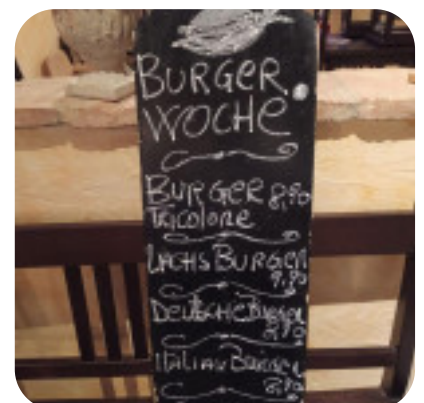 BURGER
WOCHE
BURGER 8,90
TRicoloRe
LACHS BURGER
9,90
DeutscHe Burger
ITALIAN Burger